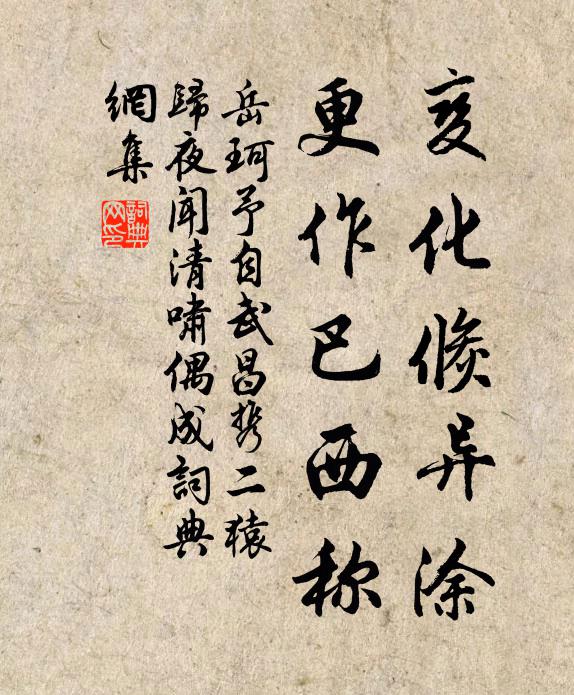 变化倏异涂
更作巴西称
岳珂予自武昌携二猿
歸夜闻清啸偶成詞典
網集
詞典网印